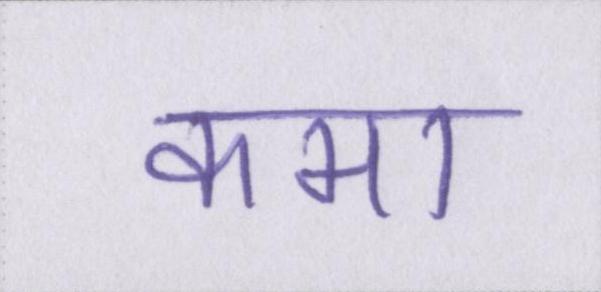 कमा